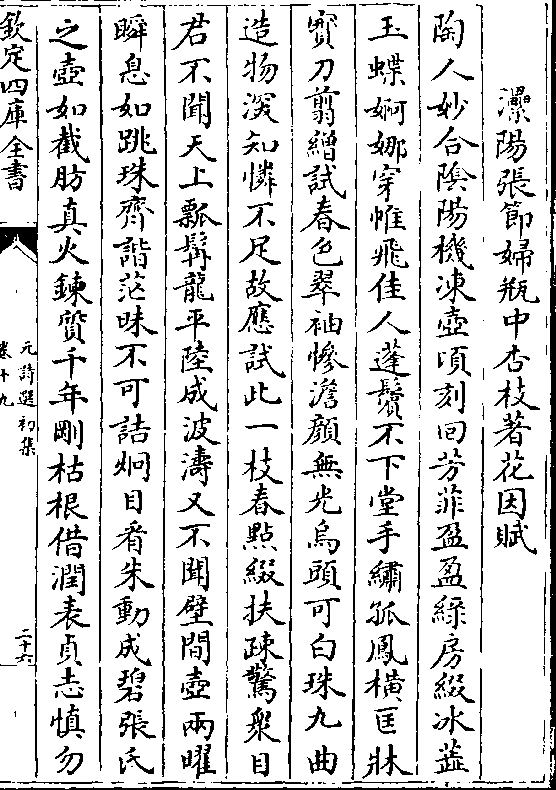 灤陽張節婦瓶中杏枝著花因賦
陶人妙合陰陽機凍壺頃刻回芳菲盈盈綠房綴冰蕋
玉蝶婀娜穿帷飛佳人蓬鬢不下堂手繡孤鳳橫匡牀
寳刀翦繒試春色翠袖慘澹顔無光烏頭可白珠九曲
造物深知憐不足故應試此一枝春點綴扶疎驚衆目
君不聞天上瓢髯龍平陸成波濤又不聞壁間壺兩曜
瞬息如跳珠齊諧茫昧不可詰炯目看朱動成碧張氏
之壺如截肪真火鍊質千年剛枯根借潤表貞志慎勿
欽定四庫全書
元詩選初集
卷十九
二十六